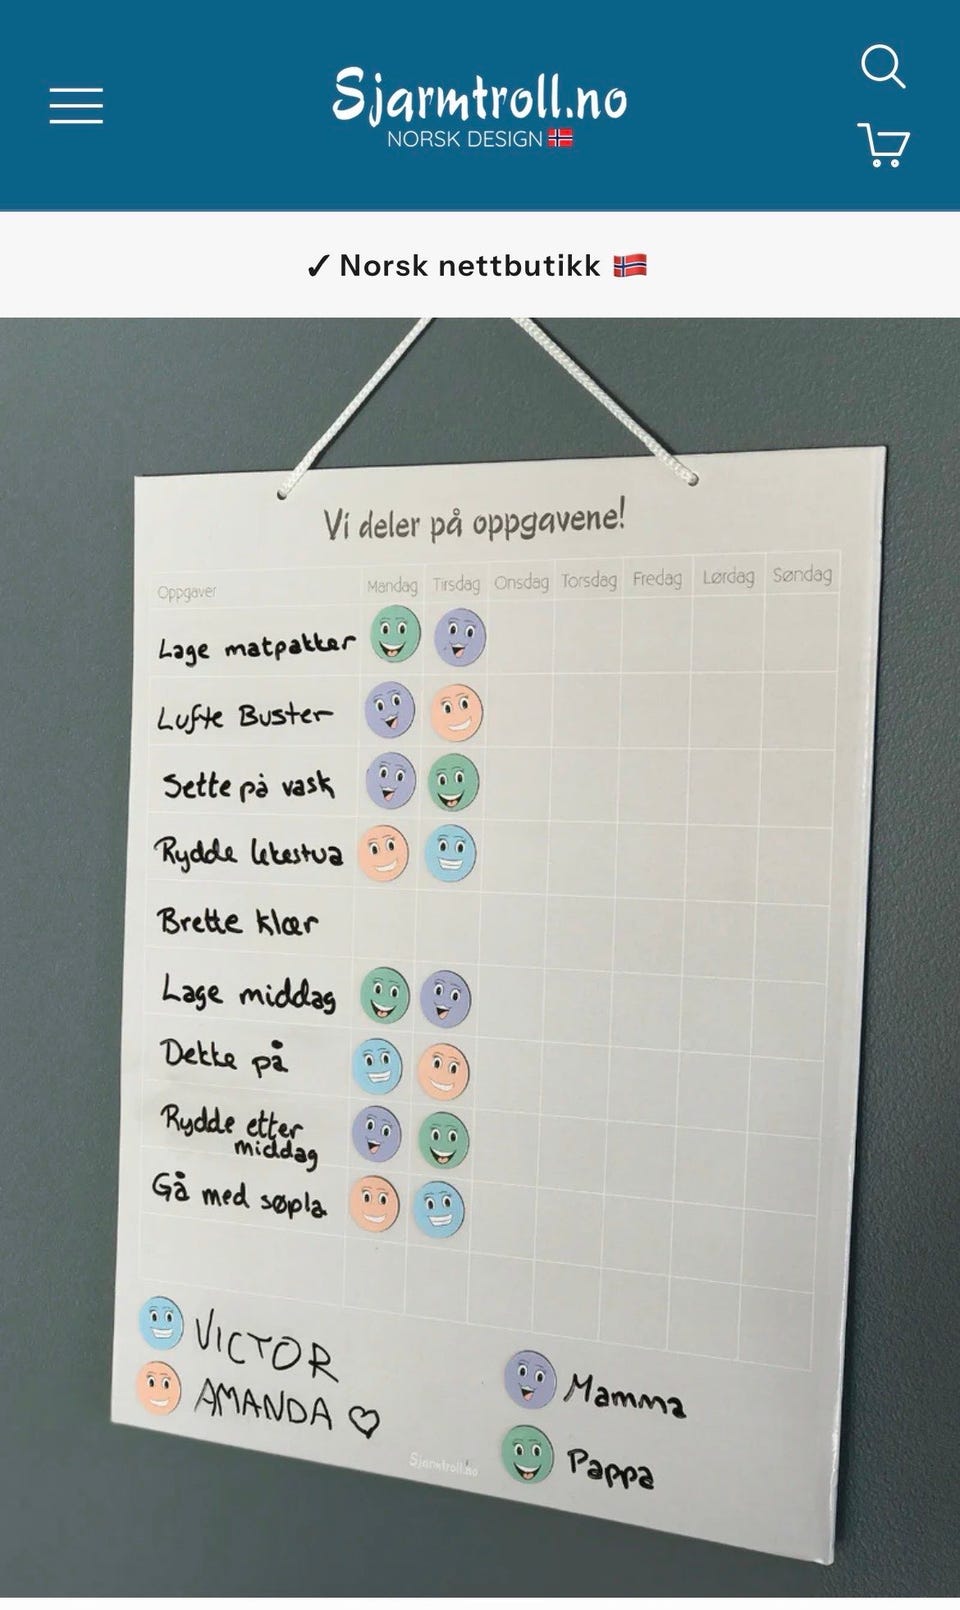 Sjarmtroll.no
NORSK DESIGN 🇳🇴
✓ Norsk nettbutikk 🇳🇴
Vi deler på oppgavene!
Oppgaver Mandag Tirsdag Onsdag Torsdag Fredag Lørdag Søndag
Lage matpakker
Lufte Buster
Sette på vask
Rydde lekestua
Brette klær
Lage middag
Dekke på
Rydde etter
middag
Gå med søpla
VICTOR
AMANDA ♡
Mamma
Pappa
Sjarmtroll.no